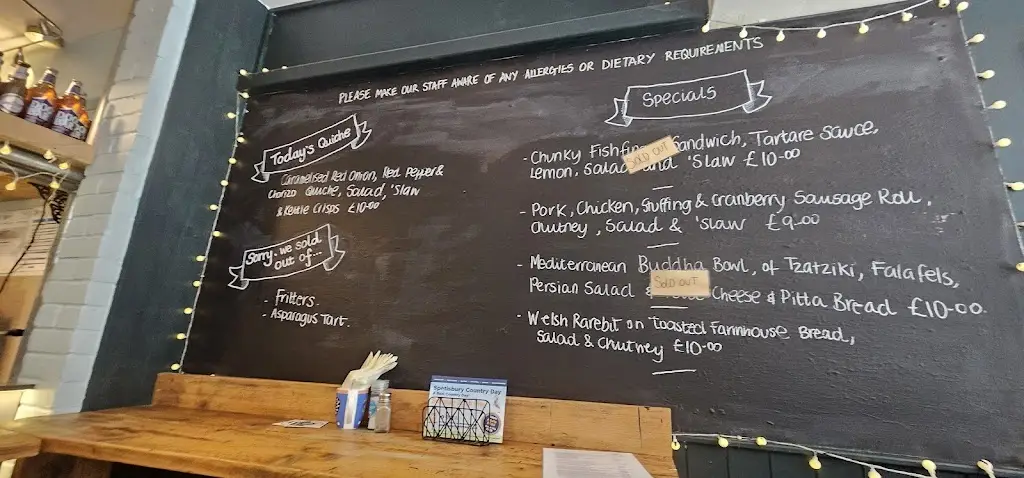 PLEASE MAKE OUR STAFF AWARE OF ANY ALLERGIES OR DIETARY REQUIREMENTS
Today's Quiche
Caramelised Red Onion, Red Pepper &
Chorizo Quiche, Salad, 'Slaw
& Kettle Crisps £10-00
Sorry.. we sold
out of...
- Fritters.
- Asparagus Tart.
Specials
- Chunky Fishfin Sandwich, Tartare Sauce,
SOLD OUT
Lemon, Salad and 'Slaw £10-00
- Pork, Chicken, Stuffing & Cranberry Sausage Roll,
Chutney, Salad & 'Slaw £9.00
- Mediterranean Buddha Bowl, of Tzatziki, Falafels,
SOLD OUT
Persian Salad & Cheese & Pitta Bread £10-00.
- Welsh Rarebit on Toasted Farmhouse Bread,
Salad & Chutney £10-00
Spetisbury Country Day